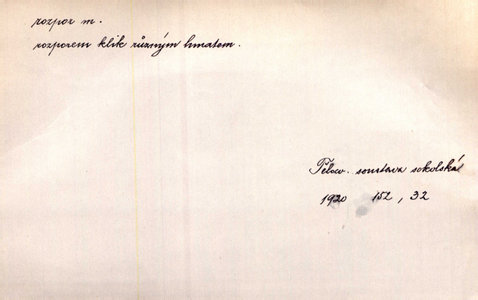 rozpor m.
rozporem klik různým hmatem.
Tělov. soustava sokolská
1920 152, 32